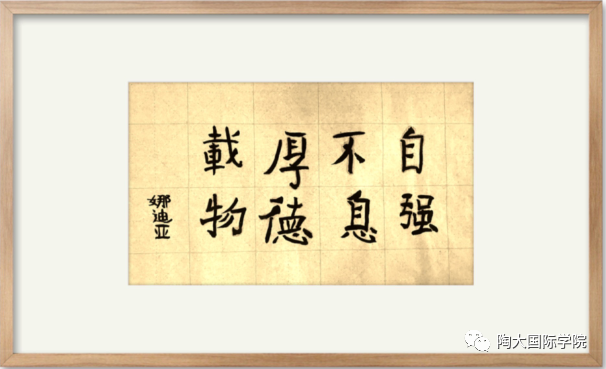 自强
不息
厚德
載物
娜迪亚
陶大国际学院